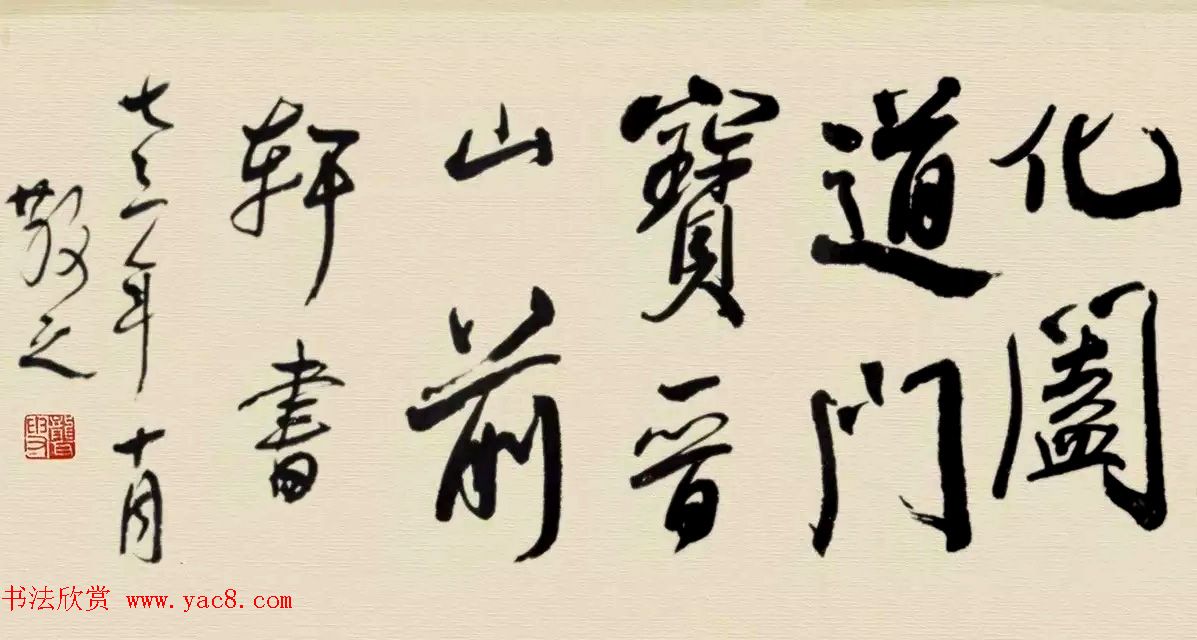 化闔
道門
寶晉
山前
軒書
七三年十月
散之
書法欣赏 www.yac8.com